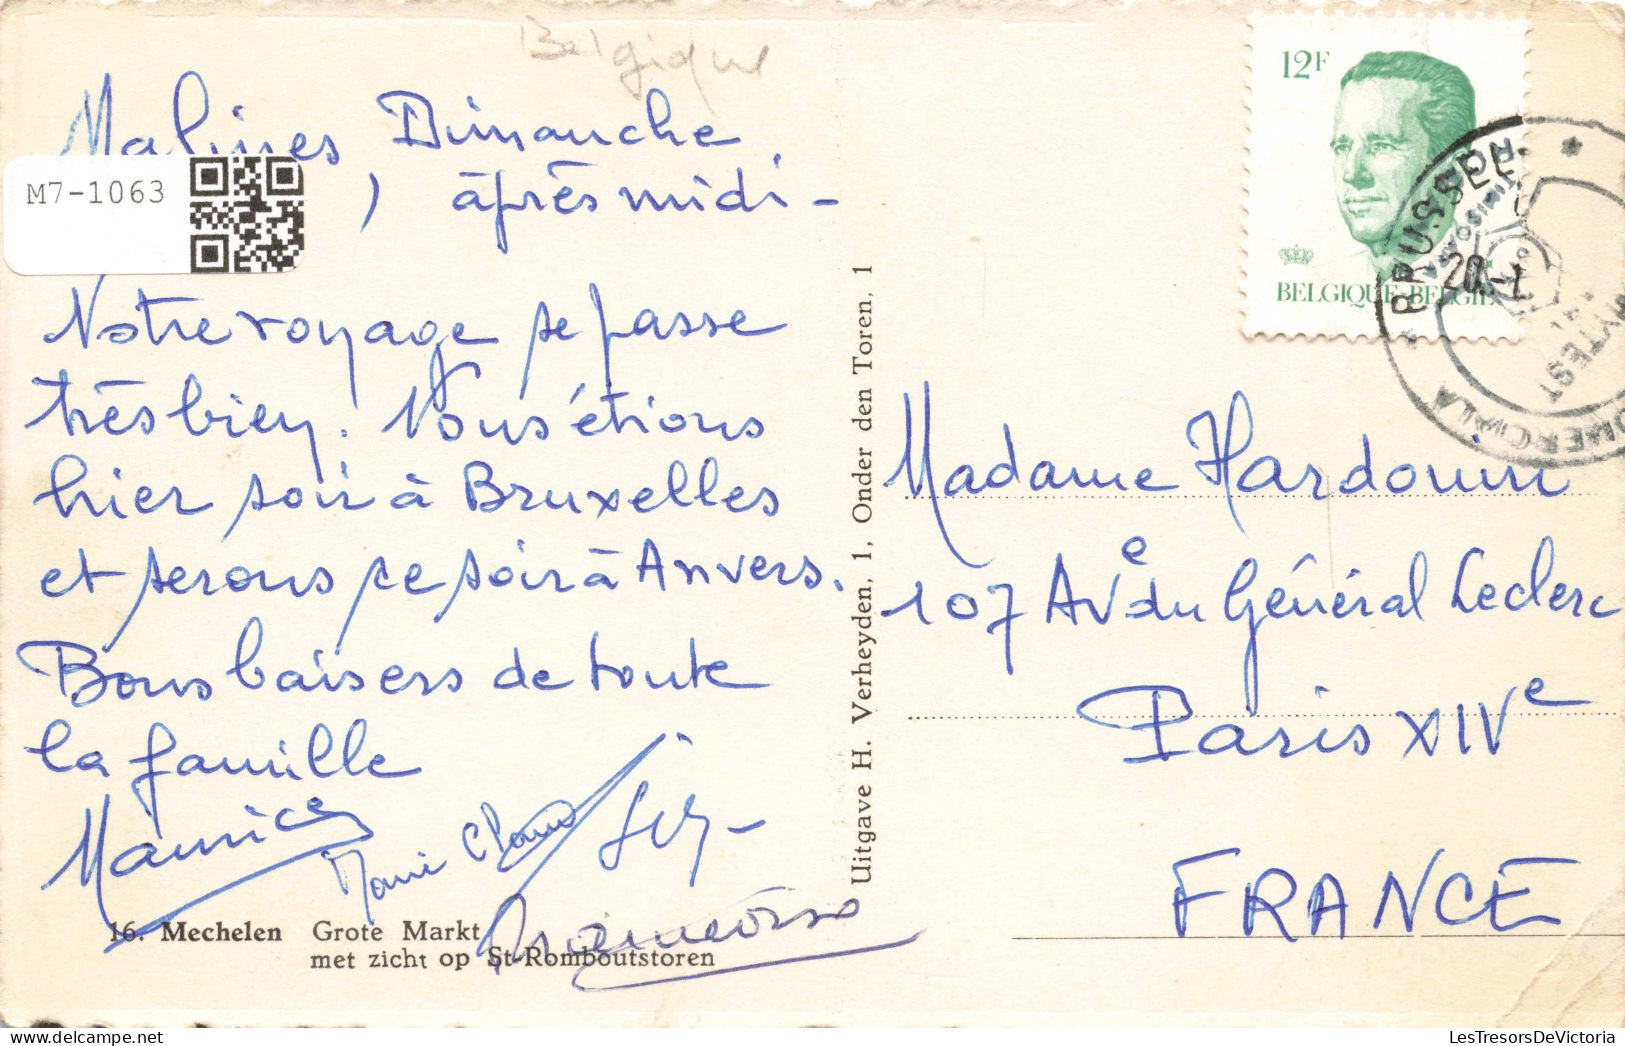 Belgique
Malines, Dimanche
après midi -
M7-1063
Notre voyage se passe
très bien. Nous étions
hier soir à Bruxelles
et serons ce soir à Anvers.
Bons baisers de toute
la famille
Maurice
Marie Claude
16. Mechelen Grote Markt
met zicht op St-Romboutstoren
Uitgave H. Verheyden, 1, Onder den Toren, 1
12F
BELGIQUE-BELGIË
BRUSSEL
20
Madame Hardouin
107 Ave du Général Leclerc
Paris XIVe
FRANCE
LesTresorsDeVictoria